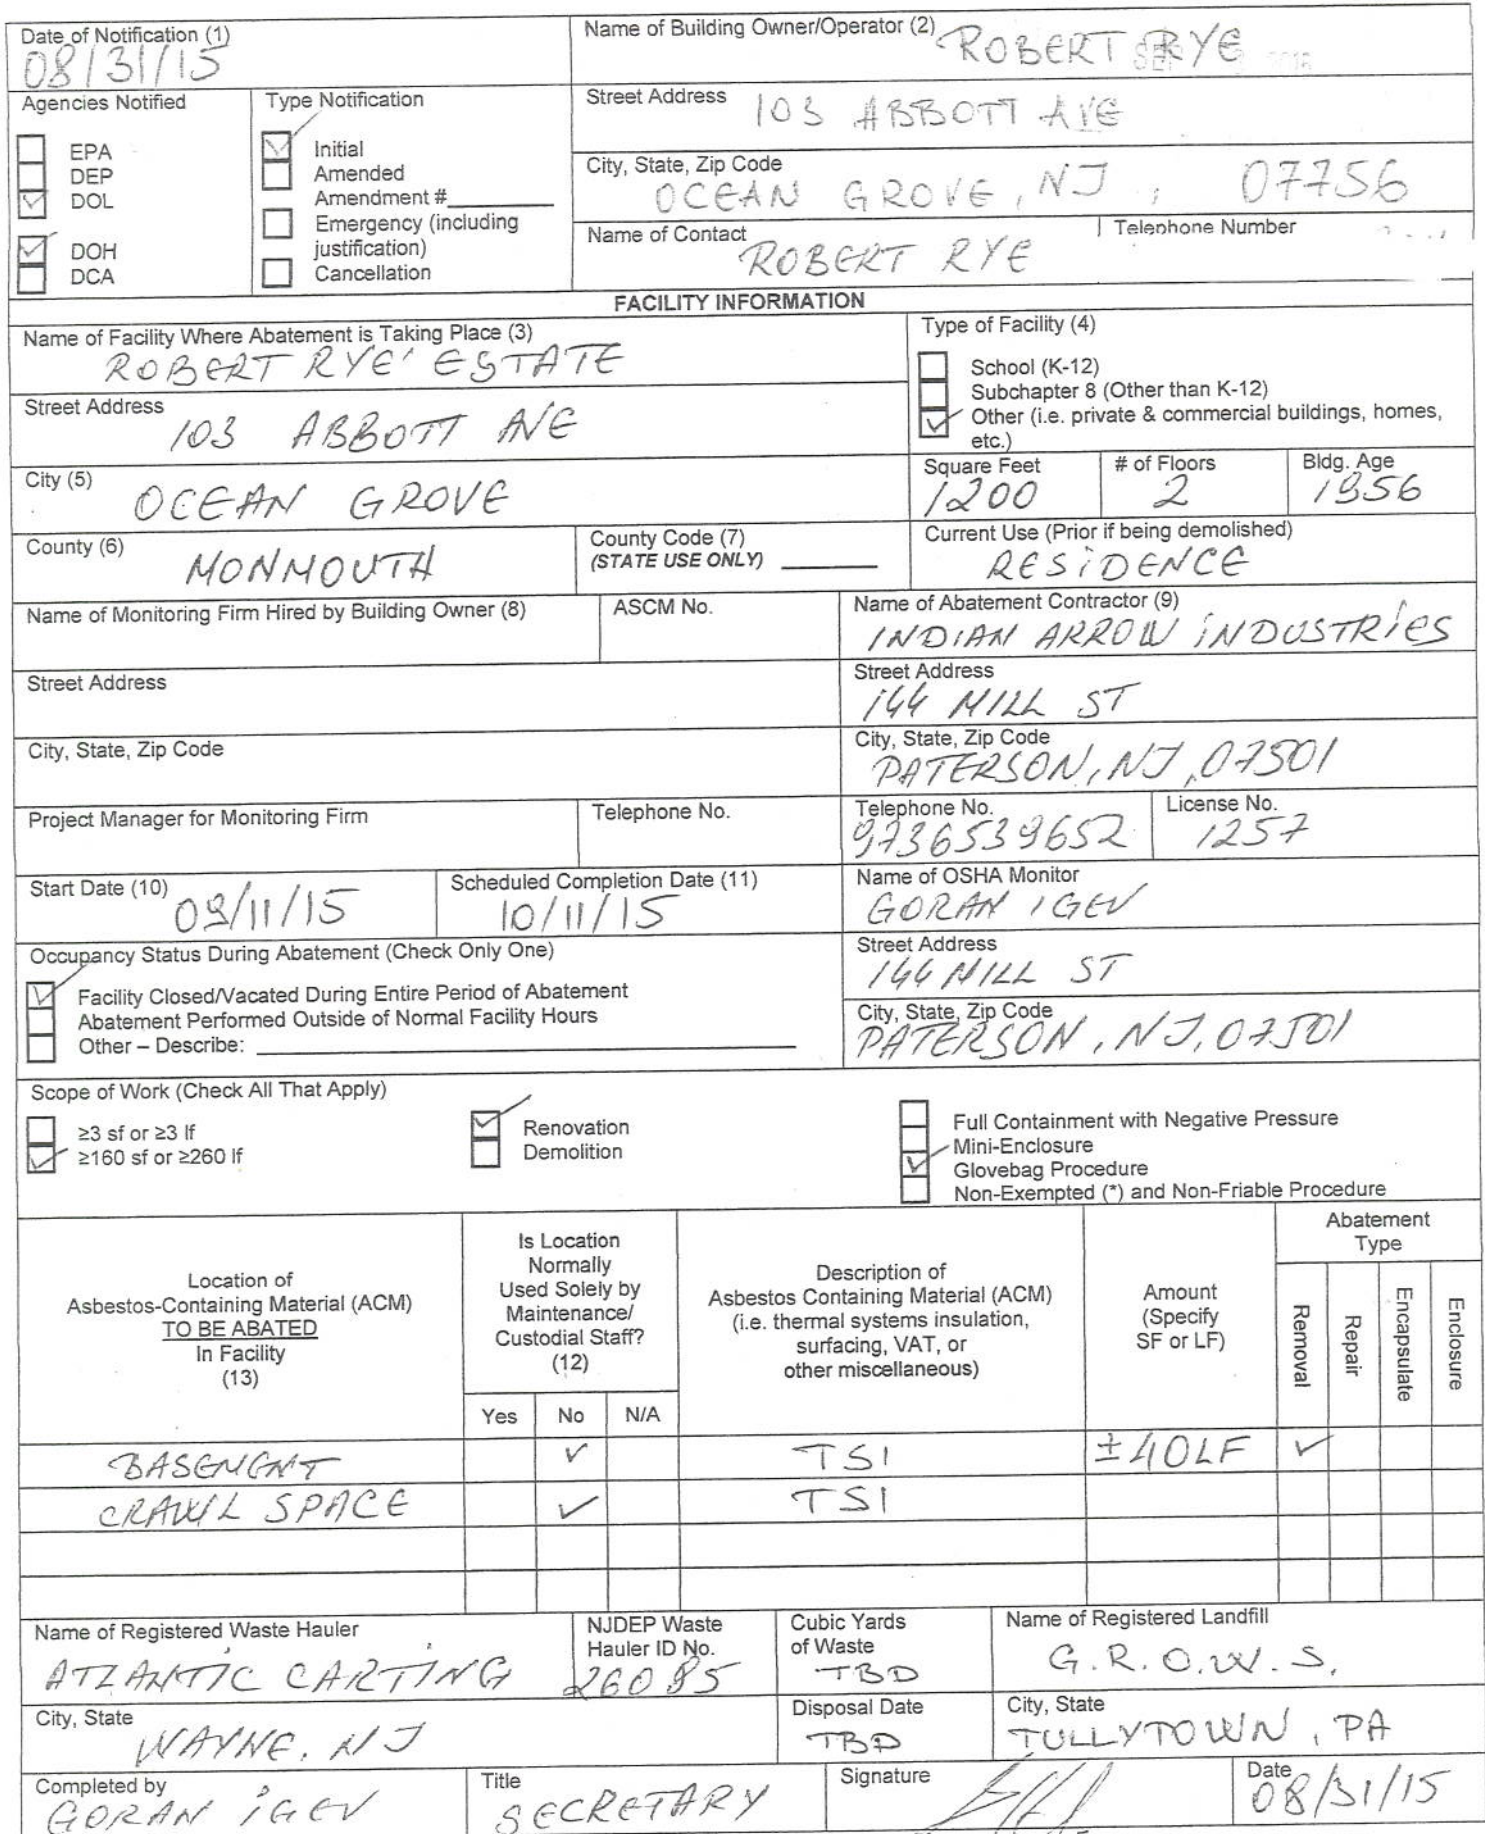 Date of Notification (1)
08/31/15
Name of Building Owner/Operator (2)
ROBERT RYE
SEP
Agencies Notified
EPA
DEP
DOL
DOH
DCA
Type Notification
Initial
Amended
Amendment #
Emergency (including
justification)
Cancellation
Street Address
103 ABBOTT AVE
City, State, Zip Code
OCEAN GROVE, NJ, 07756
Name of Contact
ROBERT RYE
Telephone Number
FACILITY INFORMATION
Name of Facility Where Abatement is Taking Place (3)
ROBERT RYE' ESTATE
Type of Facility (4)
School (K-12)
Subchapter 8 (Other than K-12)
Other (i.e. private & commercial buildings, homes,
etc.)
Street Address
103 ABBOTT AVE
City (5)
OCEAN GROVE
Square Feet
1200
# of Floors
2
Bldg. Age
1956
County (6)
MONMOUTH
County Code (7)
(STATE USE ONLY)
Current Use (Prior if being demolished)
RESiDENCE
Name of Monitoring Firm Hired by Building Owner (8)
ASCM No.
Name of Abatement Contractor (9)
INDIAN ARROW iNDUSTRiES
Street Address
Street Address
144 MILL ST
City, State, Zip Code
City, State, Zip Code
PATERSON, NJ, 07501
Project Manager for Monitoring Firm
Telephone No.
Telephone No.
9736539652
License No.
1257
Start Date (10)
09/11/15
Scheduled Completion Date (11)
10/11/15
Name of OSHA Monitor
GORAN IGEV
Occupancy Status During Abatement (Check Only One)
Facility Closed/Vacated During Entire Period of Abatement
Abatement Performed Outside of Normal Facility Hours
Other – Describe:
Street Address
144 MILL ST
City, State, Zip Code
PATERSON, NJ, 07501
Scope of Work (Check All That Apply)
≥3 sf or ≥3 lf
≥160 sf or ≥260 lf
Renovation
Demolition
Full Containment with Negative Pressure
Mini-Enclosure
Glovebag Procedure
Non-Exempted (*) and Non-Friable Procedure
Location of
Asbestos-Containing Material (ACM)
TO BE ABATED
In Facility
(13)
Is Location
Normally
Used Solely by
Maintenance/
Custodial Staff?
(12)
Yes No N/A
Description of
Asbestos Containing Material (ACM)
(i.e. thermal systems insulation,
surfacing, VAT, or
other miscellaneous)
Amount
(Specify
SF or LF)
Abatement
Type
Removal
Repair
Encapsulate
Enclosure
BASEMENT ✓ TSI ±40LF ✓
CRAWL SPACE ✓ TSI
Name of Registered Waste Hauler
ATLANTIC CARTING
NJDEP Waste
Hauler ID No.
26085
Cubic Yards
of Waste
TBD
Name of Registered Landfill
G.R.O.W.S.
City, State
WAYNE, NJ
Disposal Date
TBD
City, State
TULLYTOWN, PA
Completed by
GORAN iGEV
Title
SECRETARY
Signature
Date
08/31/15